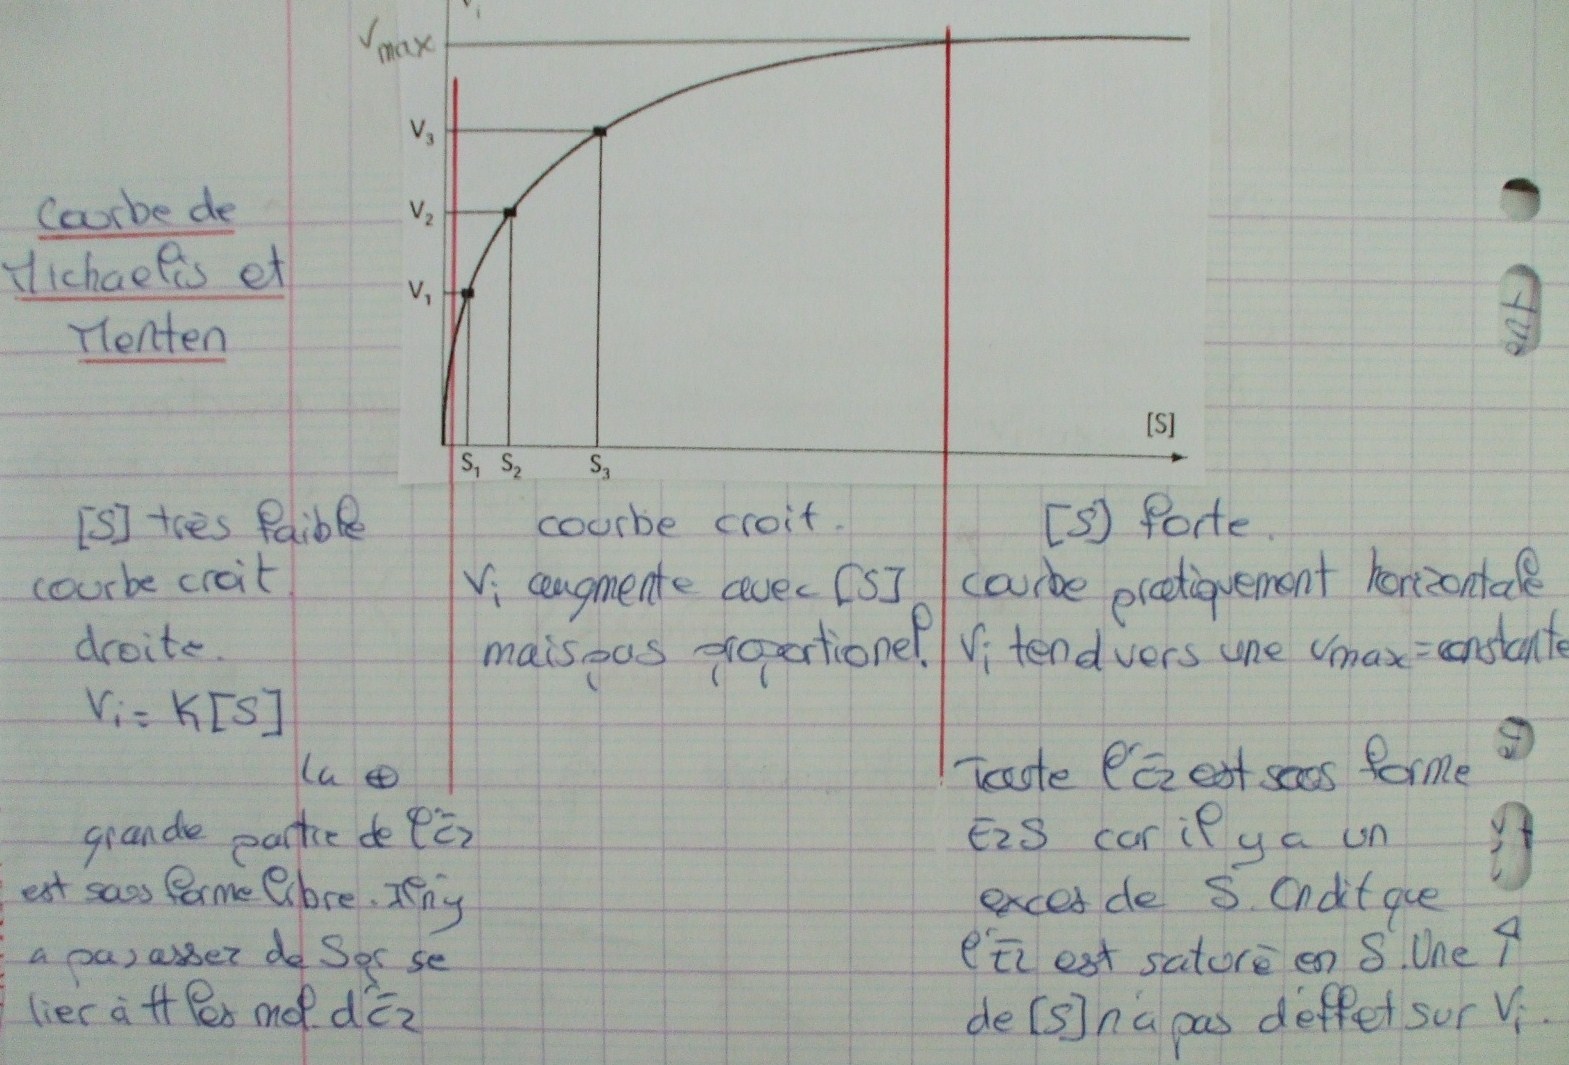 Vi
Vmax
V3
V2
V1
[S]
S1 S2 S3
Courbe de
Michaelis et
Menten
[S] très faible
courbe croit
droite.
Vi = K[S]
La ⊕
grande partie de l'Ez
est sous forme libre. Il n'y
a pas assez de S pr se
lier à tt les mol. d'Ez
courbe croit.
Vi augmente avec [S]
mais pas proportionel.
[S] forte.
courbe pratiquement horizontale
Vi tend vers une Vmax = constante
Toute l'Ez est sous forme
EzS car il y a un
exces de S. On dit que
l'Ez est saturé en S. Une ↑
de [S] n'a pas d'effet sur Vi.